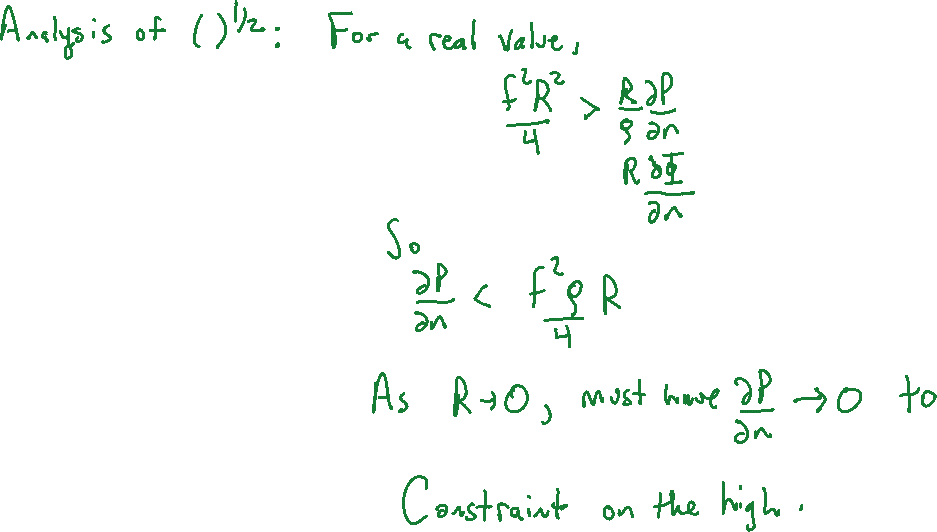 Analysis of ( )^1/2: For a real value,
f²R²/4 > R/ρ ∂P/∂n
R ∂Φ/∂n
So
∂P/∂n < f²ρ/4 R
As R→0, must have ∂P/∂n →0 to
Constraint on the high.